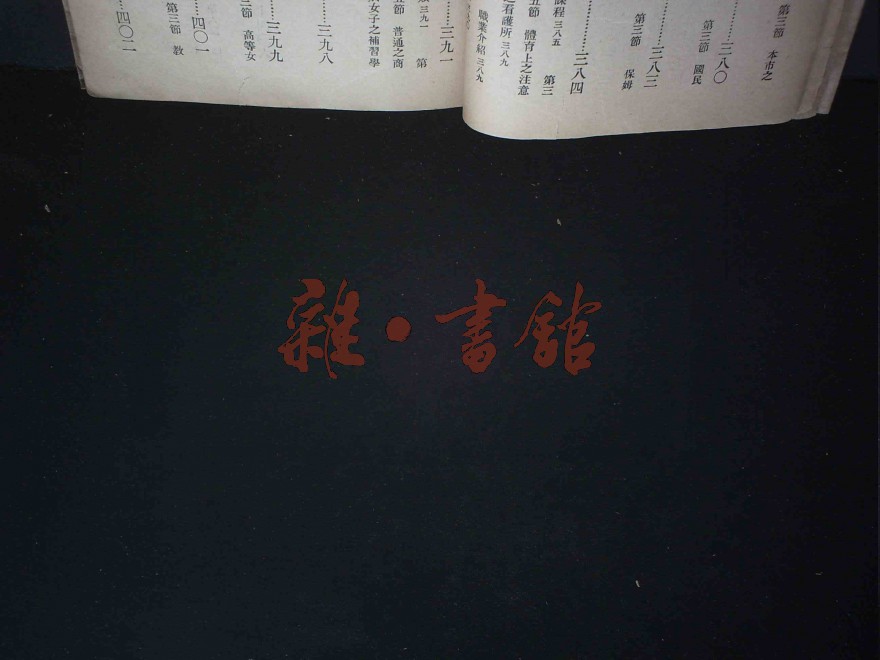 第三節　本市之
……三八〇
第三節　國民
……三八三
第三節　保姆
……三八四
課程 三八五　第三
五節　體育上之注意
看護所 三八九
職業介紹 三八九
……三九一
三九一　第
五節　普通之商
女子之補習學
……三九八
……三九九
節　高等女
……四〇一
第三節　教
……四〇二
雜・書館